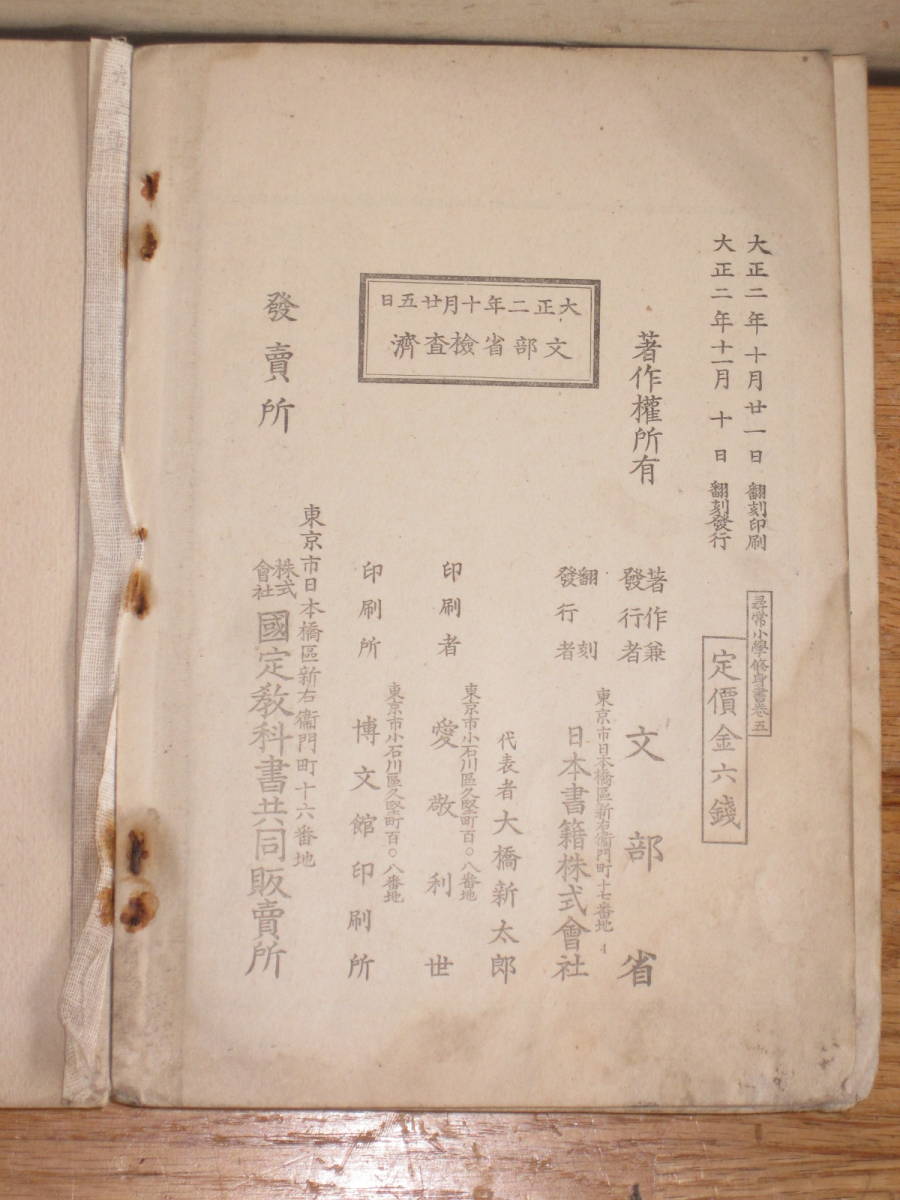 大正二年十月廿一日 翻刻印刷
大正二年十一月十日 翻刻發行
尋常小學修身書卷五
定價金六錢
著作權所有
著作兼發行者 文部省
大正二年十月廿五日
文部省檢查濟
翻刻發行者
東京市日本橋區新右衞門町十七番地
日本書籍株式會社
代表者 大橋新太郎
東京市小石川區久堅町百〇八番地
印刷者 愛敬利世
東京市小石川區久堅町百〇八番地
印刷所 博文館印刷所
發賣所
東京市日本橋區新右衞門町十六番地
株式會社 國定敎科書共同販賣所